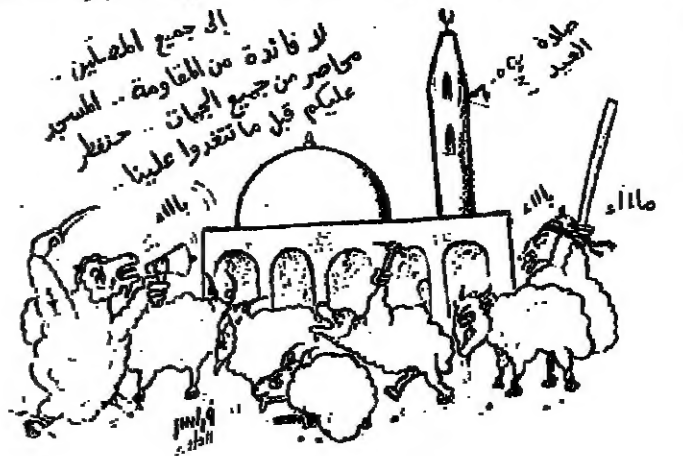 إلى جميع المصلين ..
لا فائدة من المقاومة .. المسجد
محاصر من جميع الجهات .. حنفطر
عليكم قبل ما تتغدوا علينا ..
صلاة
العيد
باااء
باااء
ماااء